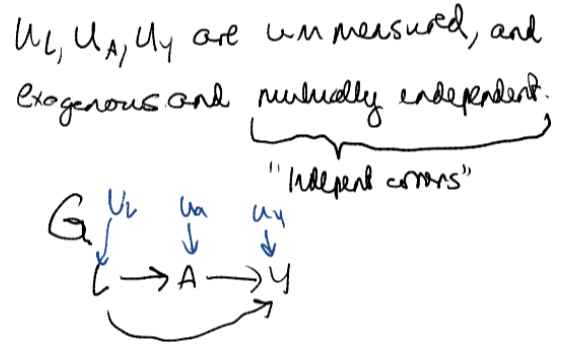 U_L, U_A, U_Y are unmeasured, and
exogenous and mutually independent.
"Indepent errors"
G U_L U_a U_Y
L → A → Y